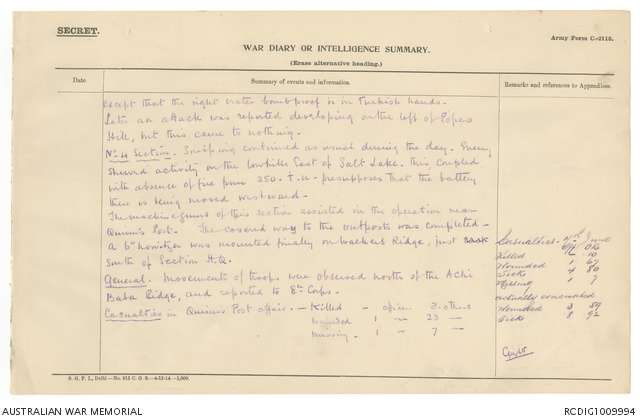 SECRET.
Army Form C.-2118.
WAR DIARY OR INTELLIGENCE SUMMARY.
(Erase alternative heading.)
Date
Summary of events and information.
Remarks and references to Appendices.
except that the right crater bombproof is in Turkish hands.
Later an attack was reported developing on the left of Popes
Hill, but this came to nothing.
No 4 Section. Sniping continued as usual during the day. Enemy
showed activity on the low hills East of Salt Lake. This, coupled
with absence of fire from 250. I. u. presupposes that the battery
there is being moved westward.
The machine guns of this section assisted in the operation near
Quinn's Post. The covered way to the outposts was completed -
A 6" howitzer was mounted finally on walkers Ridge, just
South of Section H.Q.
General. Movements of troops were observed north of the Achi
Baba Ridge, and reported to 8th Corps.
Casualties in Quinns Post affair. - Killed - officers 2 others
Wounded 1 " 23 "
Missing 1 " 7 "
Casualties.
Off O.R.
Killed 10
Wounded 1 67
Sick 4 80
Missing 1 7
actually evacuated
Wounded 3 59
Sick 8 92
S. G. P. I., Delhi
AUSTRALIAN WAR MEMORIAL
RCDIG1009994